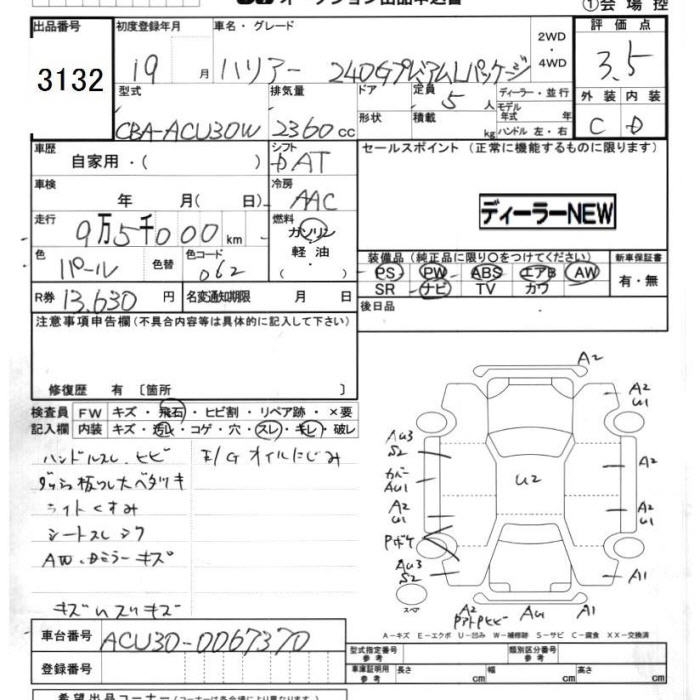 ①会場控
出品番号
3132
初度登録年月
19
月
車名・グレード
ハリアー 240GプレミアムLパッケージ
2WD
・
4WD
評価点
3.5
外装 内装
C D
型式
CBA-ACU30W
排気量
2360 cc
ドア
形状
定員
5 人
積載
kg
ディーラー・並行
モデル年式 年
ハンドル 左・右
車歴
自家用・( )
シフト
FAT
車検
年 月( 日)
冷房
AAC
走行
9万5千000 km
燃料
ガソリン
軽油
・
( )
色
パール
色替
色コード
062
R券
13,630 円
名変通知期限 月 日
セールスポイント (正常に機能するものに限ります)
ディーラーNEW
装備品 (純正品に限り○をつけてください)
PS PW ABS エアB AW
SR ナビ TV カワ
新車保証書
有・無
後日品
注意事項申告欄 (不具合内容等は具体的に記入して下さい)
修復歴 有 〔箇所 〕
検査員
記入欄
FW キズ・飛石・ヒビ割・リペア跡・×要
内装 キズ・汚れ・コゲ・穴・スレ・キレ・破レ
ハンドルスレ、ヒビ
E/Gオイルにじみ
ライトくすみ
シートスレ シワ
AW、ミラーキズ
A2
A2
U1
AU3
S2
カバー
AU1
A2
U2
A2
U1
A2
U1
AU3
S2
A1
スペア
A2
AU1
A1
A-キズ E-エクボ U-凹み W-補修跡 S-サビ C-腐食 XX-交換済
車台番号
ACU30-0067370
登録番号
型式指定番号
参考
類別区分番号
参考
車庫証明用
参考
長さ cm
幅 cm
高さ cm